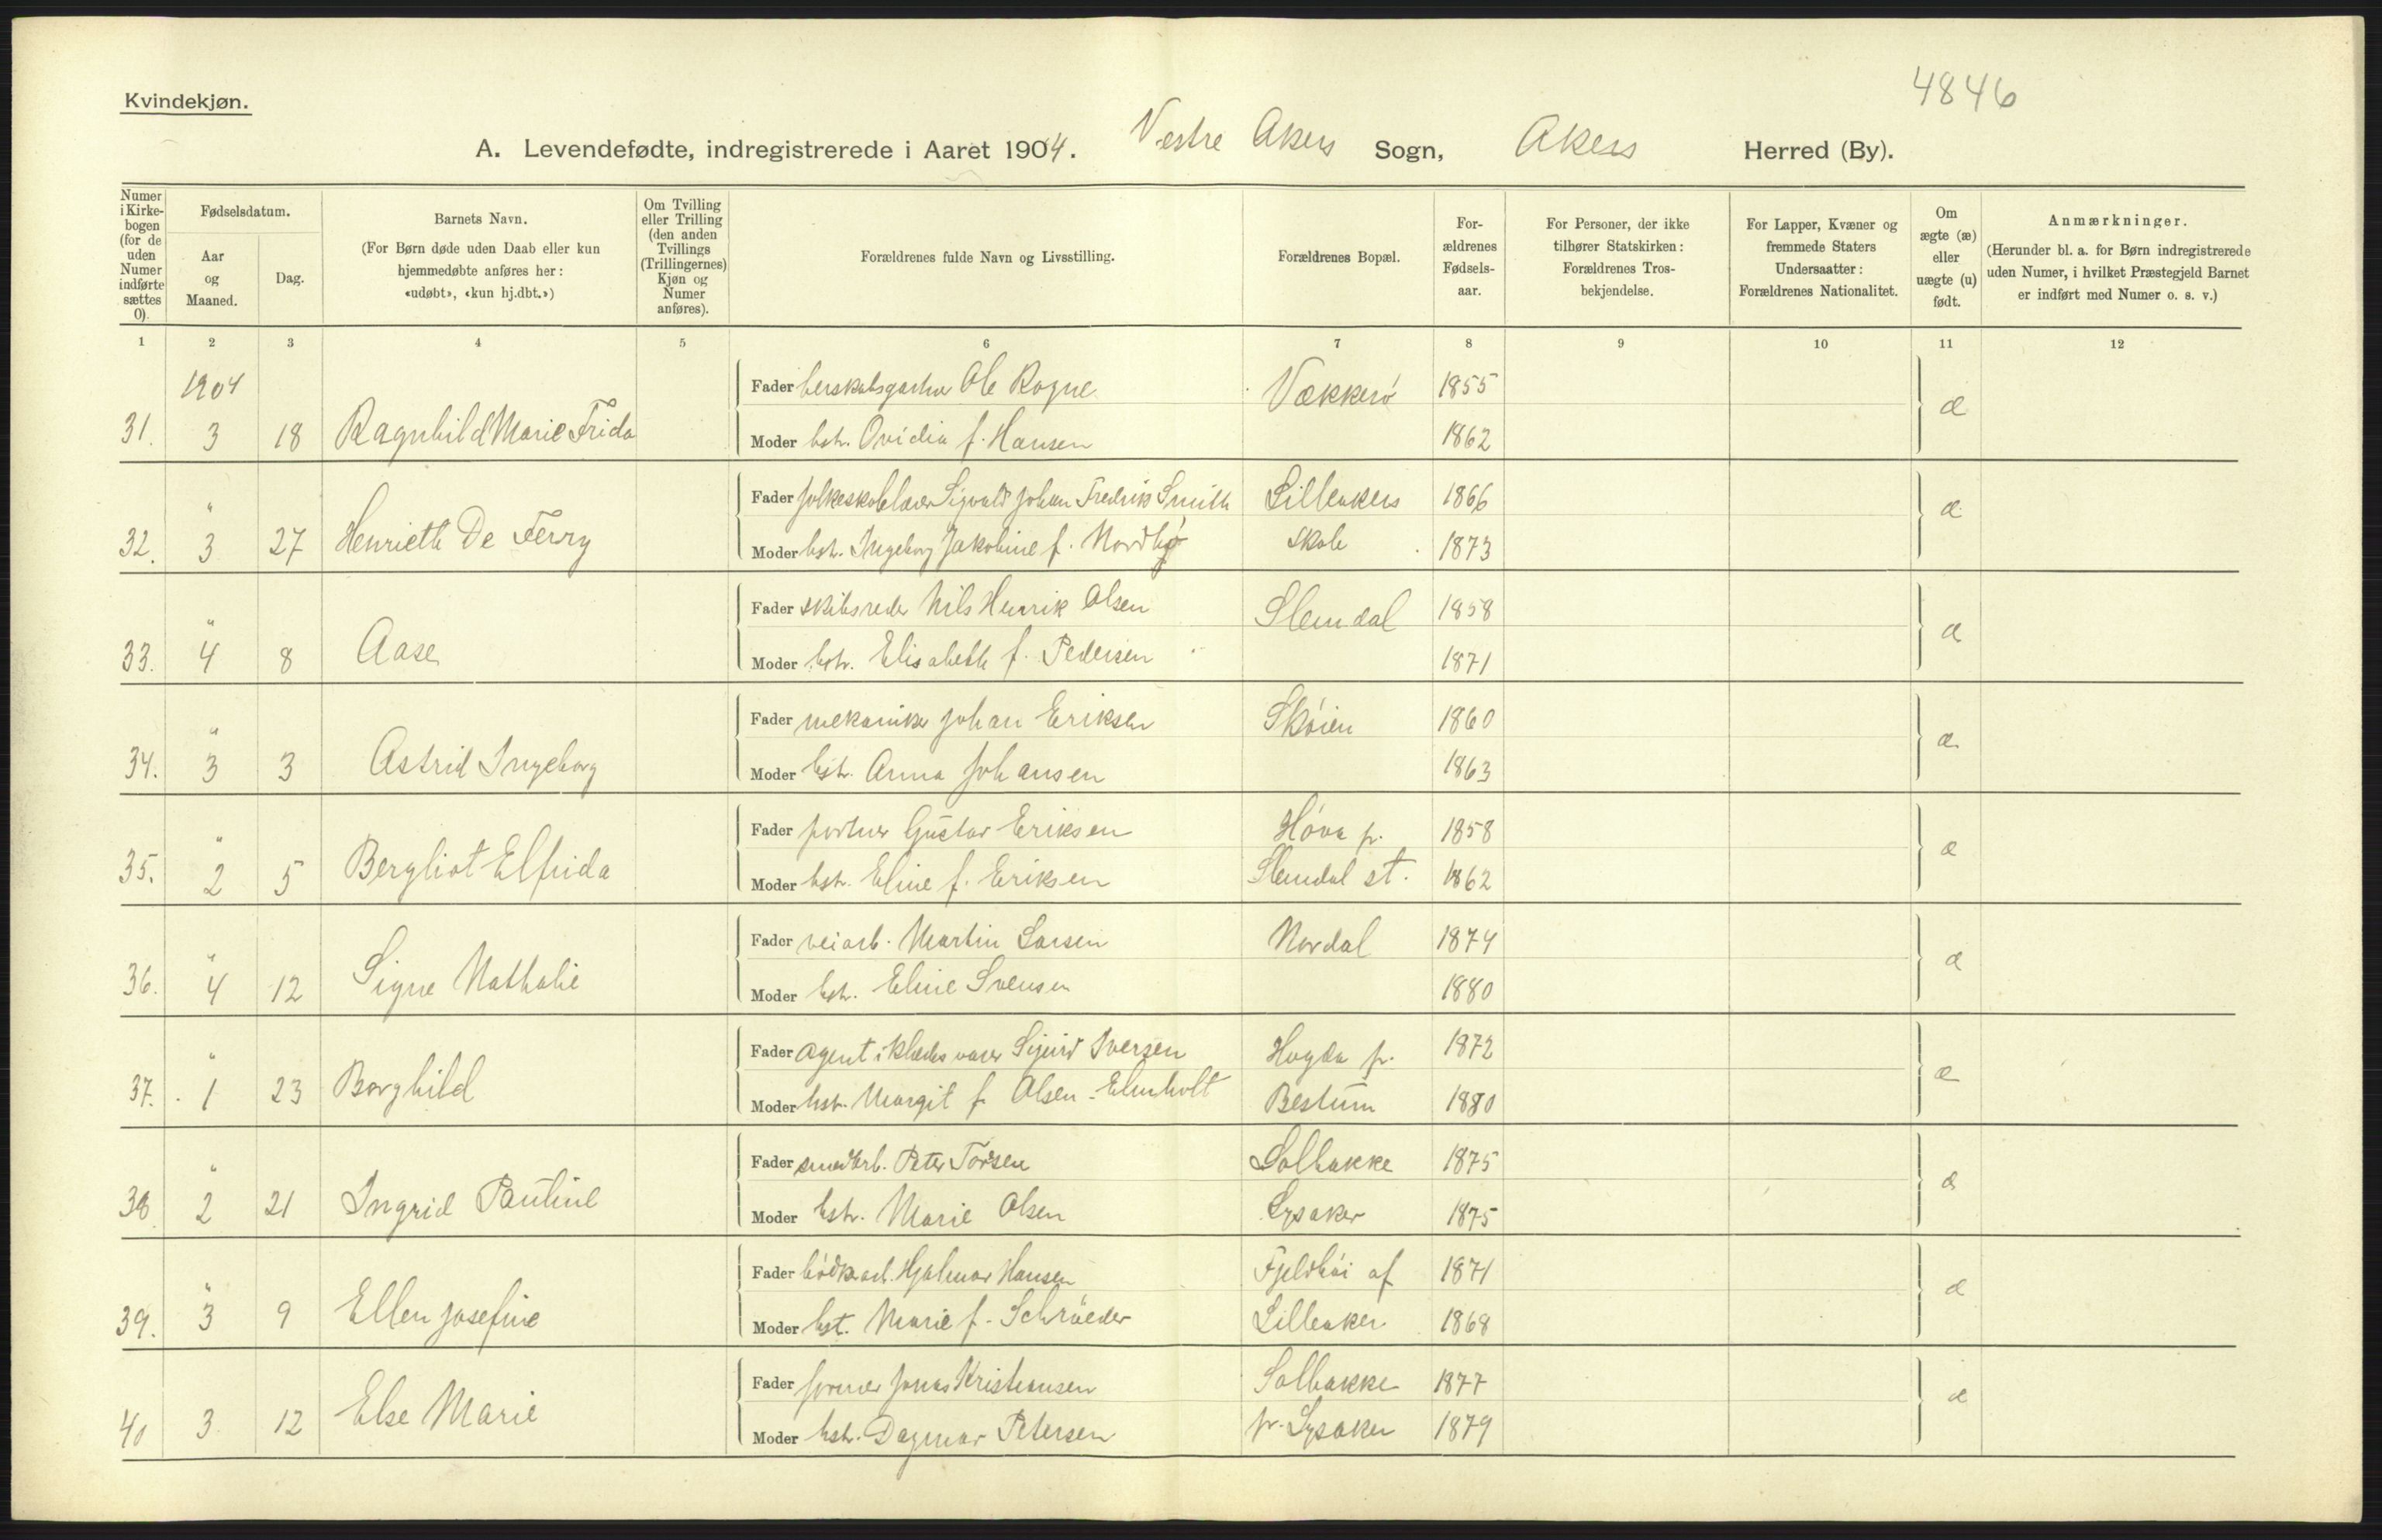 Kvindekjøn.
4846
A. Levendefødte, indregistrerede i Aaret 1904. Vestre Akers Sogn, Akers Herred (By).
Numer i Kirke-bogen (for de uden Numer indførte sættes 0).
Fødselsdatum.
Aar og Maaned.
Dag.
Barnets Navn.
(For Børn døde uden Daab eller kun hjemmedøbte anføres her: «udøbt», «kun hj.dbt.»)
Om Tvilling eller Trilling (den anden Tvillings (Trillingernes) Kjøn og Numer anføres).
Forældrenes fulde Navn og Livsstilling.
Forældrenes Bopæl.
For-ældrenes Fødsels-aar.
For Personer, der ikke tilhører Statskirken: Forældrenes Tros-bekjendelse.
For Lapper, Kvæner og fremmede Staters Undersaatter: Forældrenes Nationalitet.
Om ægte (æ) eller uægte (u) født.
Anmærkninger.
(Herunder bl. a. for Børn indregistrerede uden Numer, i hvilket Præstegjeld Barnet er indført med Numer o. s. v.)
1 2 3 4 5 6 7 8 9 10 11 12
1904
Fader herskabsgartner Ole Rogne Vækkerø 1855 æ
31. 3 18 Ragnhild Marie Frida Moder hstr. Ovidia f. Hansen 1862
" Fader folkeskolelærer Sigvald Johan Fredrik Smith Lilleakers 1866 æ
32. 3 27 Henriette De Ferry Moder hstr. Ingeborg Jakobine f. Nordbø skole 1873
" Fader skibsreder Nils Henrik Olsen Slemdal 1858 æ
33. 4 8 Aase Moder hstr. Elisabeth f. Pedersen 1871
" Fader mekaniker Johan Eriksen Skøien 1860 æ
34. 3 3 Astrid Ingeborg Moder hstr. Anna Johansen 1863
" Fader portner Gustav Eriksen Høve p. 1858 æ
35. 2 5 Bergliot Elfrida Moder hstr. Eline f. Eriksen Slemdal st. 1862
" Fader veiarb. Martin Larsen Nordal 1874 æ
36. 4 12 Signe Nathalie Moder hstr. Eline Svensen 1880
" Fader agent i klædesvarer Sigurd Iversen Hygda p. 1872 æ
37. 1 23 Borghild Moder hstr. Margit f. Olsen-Elmholt Bestum 1880
" Fader smedarb. Peter Torsen Solbakke 1875 æ
38 2 21 Ingrid Pauline Moder hstr. Marie Olsen Lysaker 1875
" Fader bødkerarb. Hjalmar Hansen Fjeldhøi af 1871 æ
39. 3 9 Ellen Josefine Moder hst. Marie f. Schrøeder Lilleaker 1868
Fader former Jonas Kristiansen Solbakke 1877 æ
40 3 12 Else Marie Moder hstr. Dagmar Petersen pr. Lysaker 1879